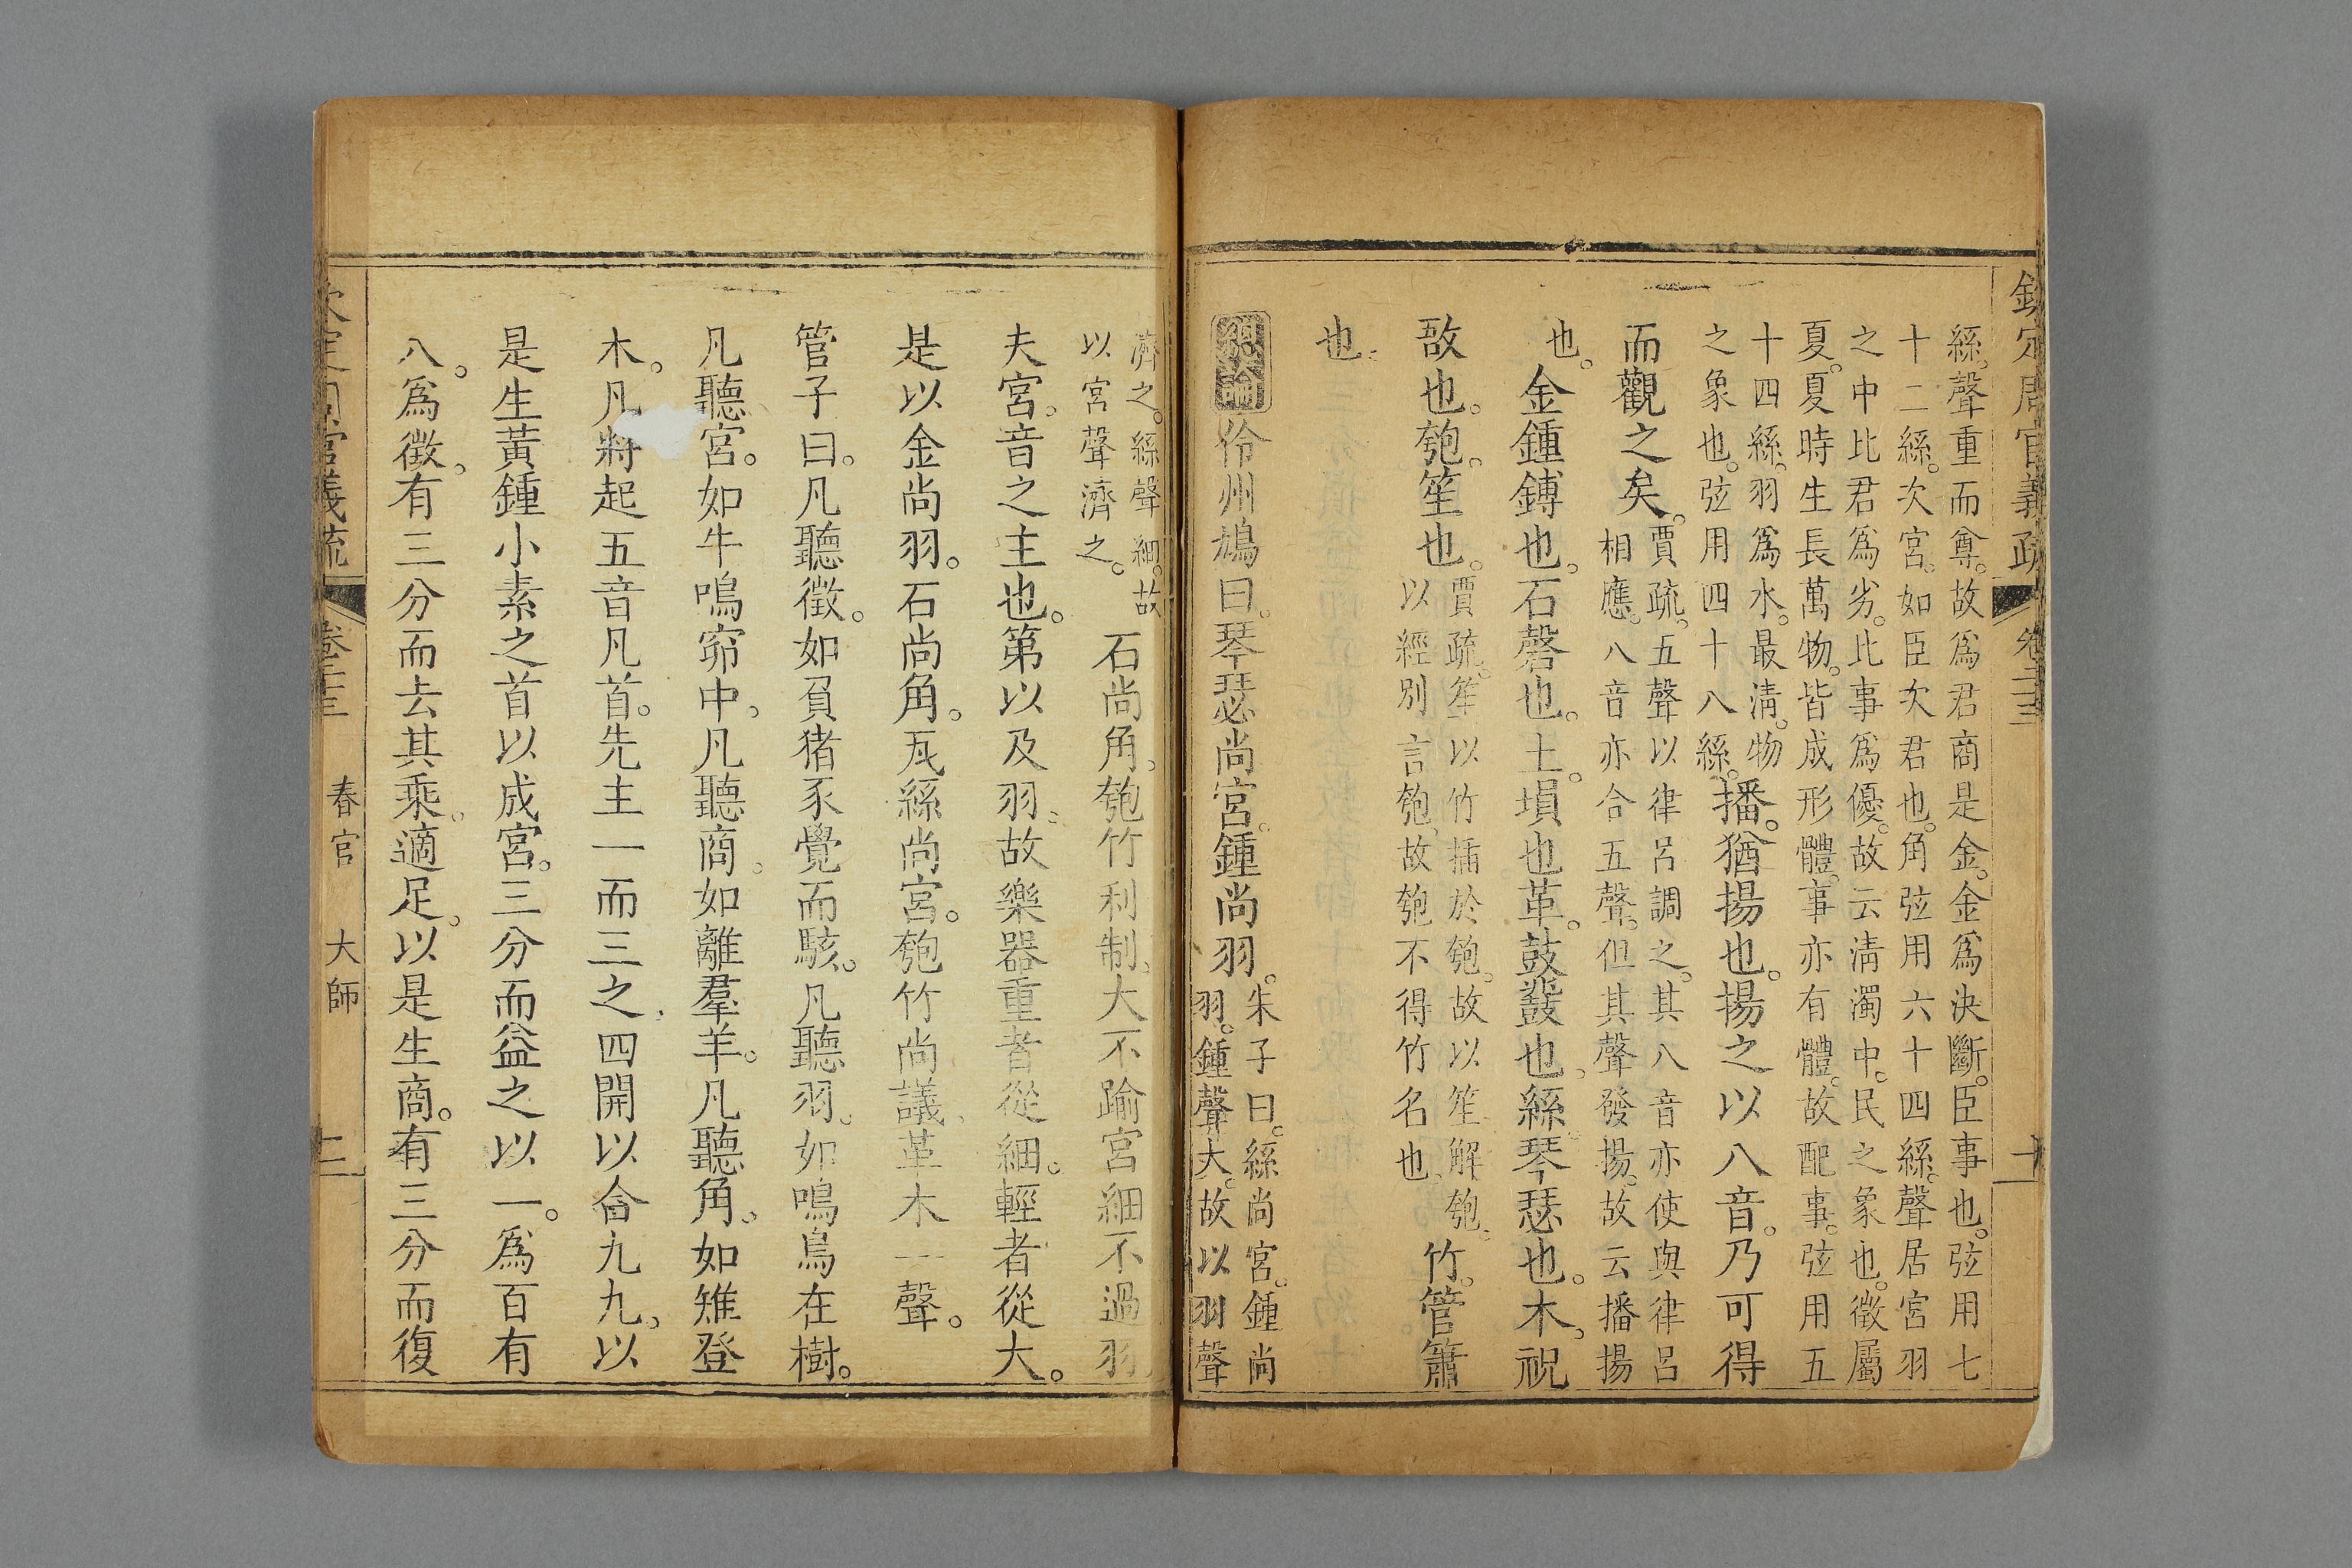 欽定周官義疏 卷二十三 十
絲。聲重而尊。故爲君商是金。金爲決斷。臣事也。弦用七
十二絲。次宮。如臣次君也。角弦用六十四絲。聲居宮羽
之中比君爲劣。比事爲優。故云淸濁中。民之象也。徵屬
夏。夏時生長萬物。皆成形體。事亦有體。故配事。弦用五
十四絲。羽爲水。最淸。物
之象也。弦用四十八絲。
播。猶揚也。揚之以八音。乃可得
而觀之矣。
賈疏。五聲以律呂調之。其八音亦使與律呂
相應。八音亦合五聲。但其聲發揚。故云播揚
也。
金鍾鎛也。石磬也。土。塤也。革。鼓鼗也。絲琴瑟也。木。柷
敔也。匏。笙也。
賈疏。笙以竹插於匏。故以笙解匏。
以經別言匏。故匏不得竹名也。
竹。管簫
也。
總論 伶州鳩曰。琴瑟尚宮。鍾尚羽。
朱子曰。絲尚宮。鍾尚
羽。鍾聲大。故以羽聲
濟之。絲聲細。故
以宮聲濟之。
石尚角。匏竹利制。大不踰宮細不過羽
夫宮。音之主也。第以及羽。故樂器重者從細。輕者從大。
是以金尚羽。石尚角。瓦絲尚宮。匏竹尚議。革木一聲。
管子曰。凡聽徵。如負猪豕覺而駭。凡聽羽。如鳴鳥在樹。
凡聽宮。如牛鳴窌中。凡聽商。如離羣羊。凡聽角。如雉登
木。凡將起五音凡首。先主一而三之。四開以合九九。以
是生黃鍾小素之首以成宮。三分而益之以一。爲百有
八。爲徵。有三分而去其乘。適足。以是生商。有三分而復
欽定周官義疏 卷二十三 春官 大師 十一